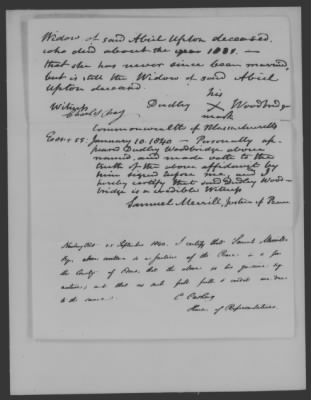 Widow of said Abiel Upton deceased,
who died about the year 1831. —
that she has never since been married,
but is still the Widow of said Abiel
Upton deceased.
his
Witness Dudley X Woodbridge
mark
Commonwealth of Massachusetts
Essex SS. January 10. 1840 — Personally ap-
peared Dudley Woodbridge above
named, and made oath to the
truth of the above affidavit by
him signed before me, and I
hereby certify that said Dudley Wood-
bridge is a credible Witness
Samuel Merrill, Justice of Peace
I certify that Samuel Merrill
is a Justice of the Peace in & for
the County of Essex, that the above is his genuine sig-
nature, and that as such full faith & credit are due
to the same.
C Cushing
House of Representatives.